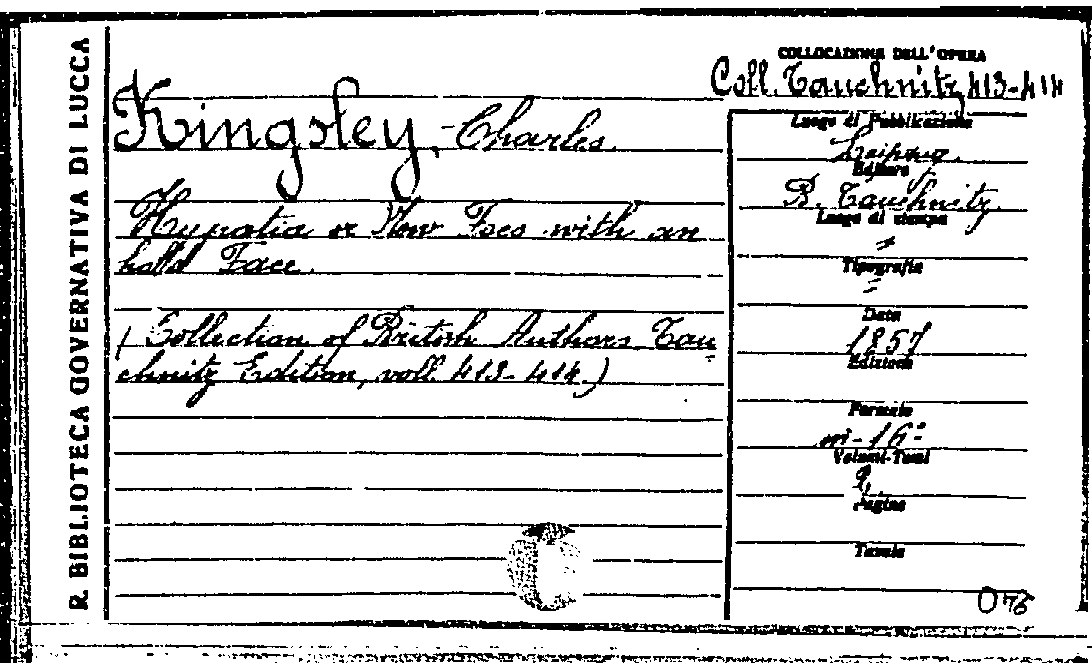 R. BIBLIOTECA GOVERNATIVA DI LUCCA
COLLOCAZIONE DELL'OPERA
Coll. Tauchnitz 413-414
Kingsley, Charles
Hypatia or New Foes with an
hold Face.
(Collection of British Authors Tau=
chnitz Edition, voll. 413-414.)
Luogo di Pubblicazione
Leipzig.
Editore
B. Tauchnitz.
Luogo di stampa
=
Tipografia
=
Data
1857
Edizione
Formato
in-16°
Volumi-Tomi
2
Pagine
Tavole